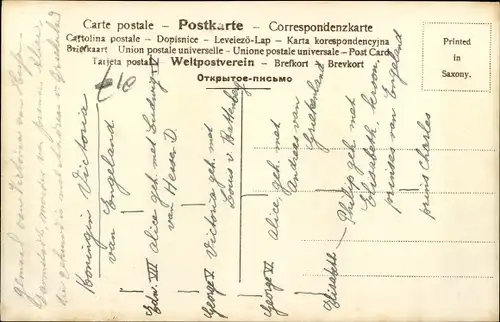 Carte postale – Postkarte – Correspondenzkarte
Cartolina postale – Dopisnice – Levelező-Lap – Karta korespondencyjna
Briefkaart Union postale universelle – Unione postale universale – Post Card
Tarjeta postal Weltpostverein – Brefkort – Brevkort
Открытое-письмо
Printed
in
Saxony.
Koningin Victoria
van Engeland
Edw. VII Alice geh. met Ludwig IV
van Hessen D.
George V Victoria geh. met
Louis v. Battenberg
George VI Alice geh. met
Andreas van
Griekenland
Elisabeth – Philip geh met
Elisabeth, kroon
prinses van Engeland
prins Charles